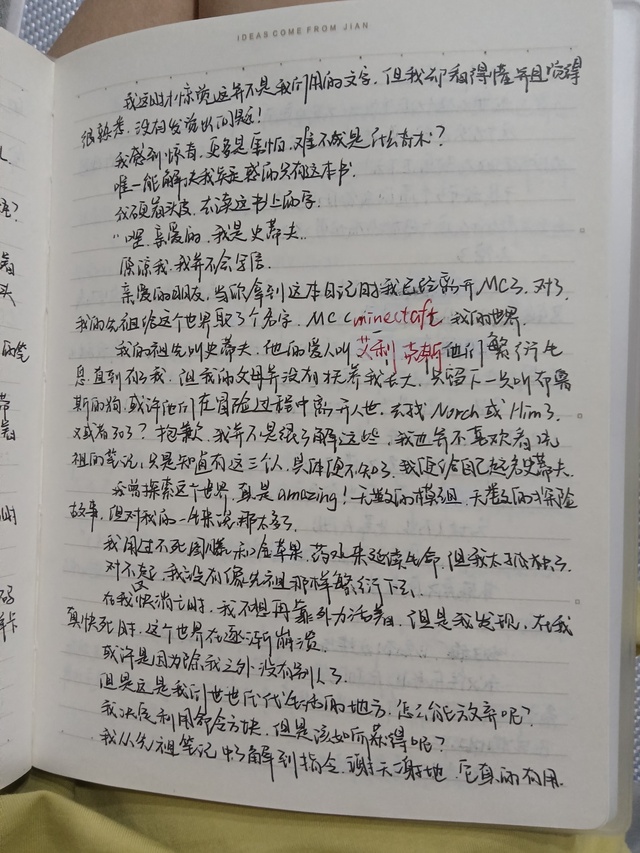 IDEAS COME FROM JIAN
我这时才惊觉这并不是我们用的文字，但我却看得懂并且觉得
很熟悉，没有发觉出问题！
我感到惊奇，更多是害怕，难不成是什么奇术？
唯一能解决我疑惑的只有这本书。
我硬着头皮，去读这书上的字。
“嘿，亲爱的，我是史蒂夫..
原谅我，我并不会字信。
亲爱的朋友，当你拿到这本日记时我已经离开MC了，对了，
我的先祖给这个世界取了个名字，MC（minectaft 我的世界
我的祖先叫史蒂夫，他的爱人叫艾利克斯他们繁衍生
息直到有了我，但我的父母并没有抚养我长大，只留下一只叫布鲁
斯的狗，或许他们在冒险过程中离开人世，去找Norch或Him了，
又或者303？抱歉，我并不是很了解这些，我也并不喜欢看先
祖的笔记，只是知道有这三个人，具体便不知了，我便给自己起名史蒂夫。
我曾探索这个世界，真是amazing！无数的模组，无数的探险
故事，但对我的一生来说那太多了。
我用过不死图腾和金苹果，药水来延续生命，但我太孤独了。
对不起，我没有像先祖那样繁衍下去。
在我快消亡时，我不想再靠外力活着，但是我发现，在我
真快死时，这个世界在逐渐崩溃。
或许是因为除我之外没有别人了。
但是这是我们世世代代生活的地方，怎么能放弃呢？
我决定利用命令方块，但是该如何获得呢？
我从先祖笔记中了解到指令，谢天谢地，它真的有用。